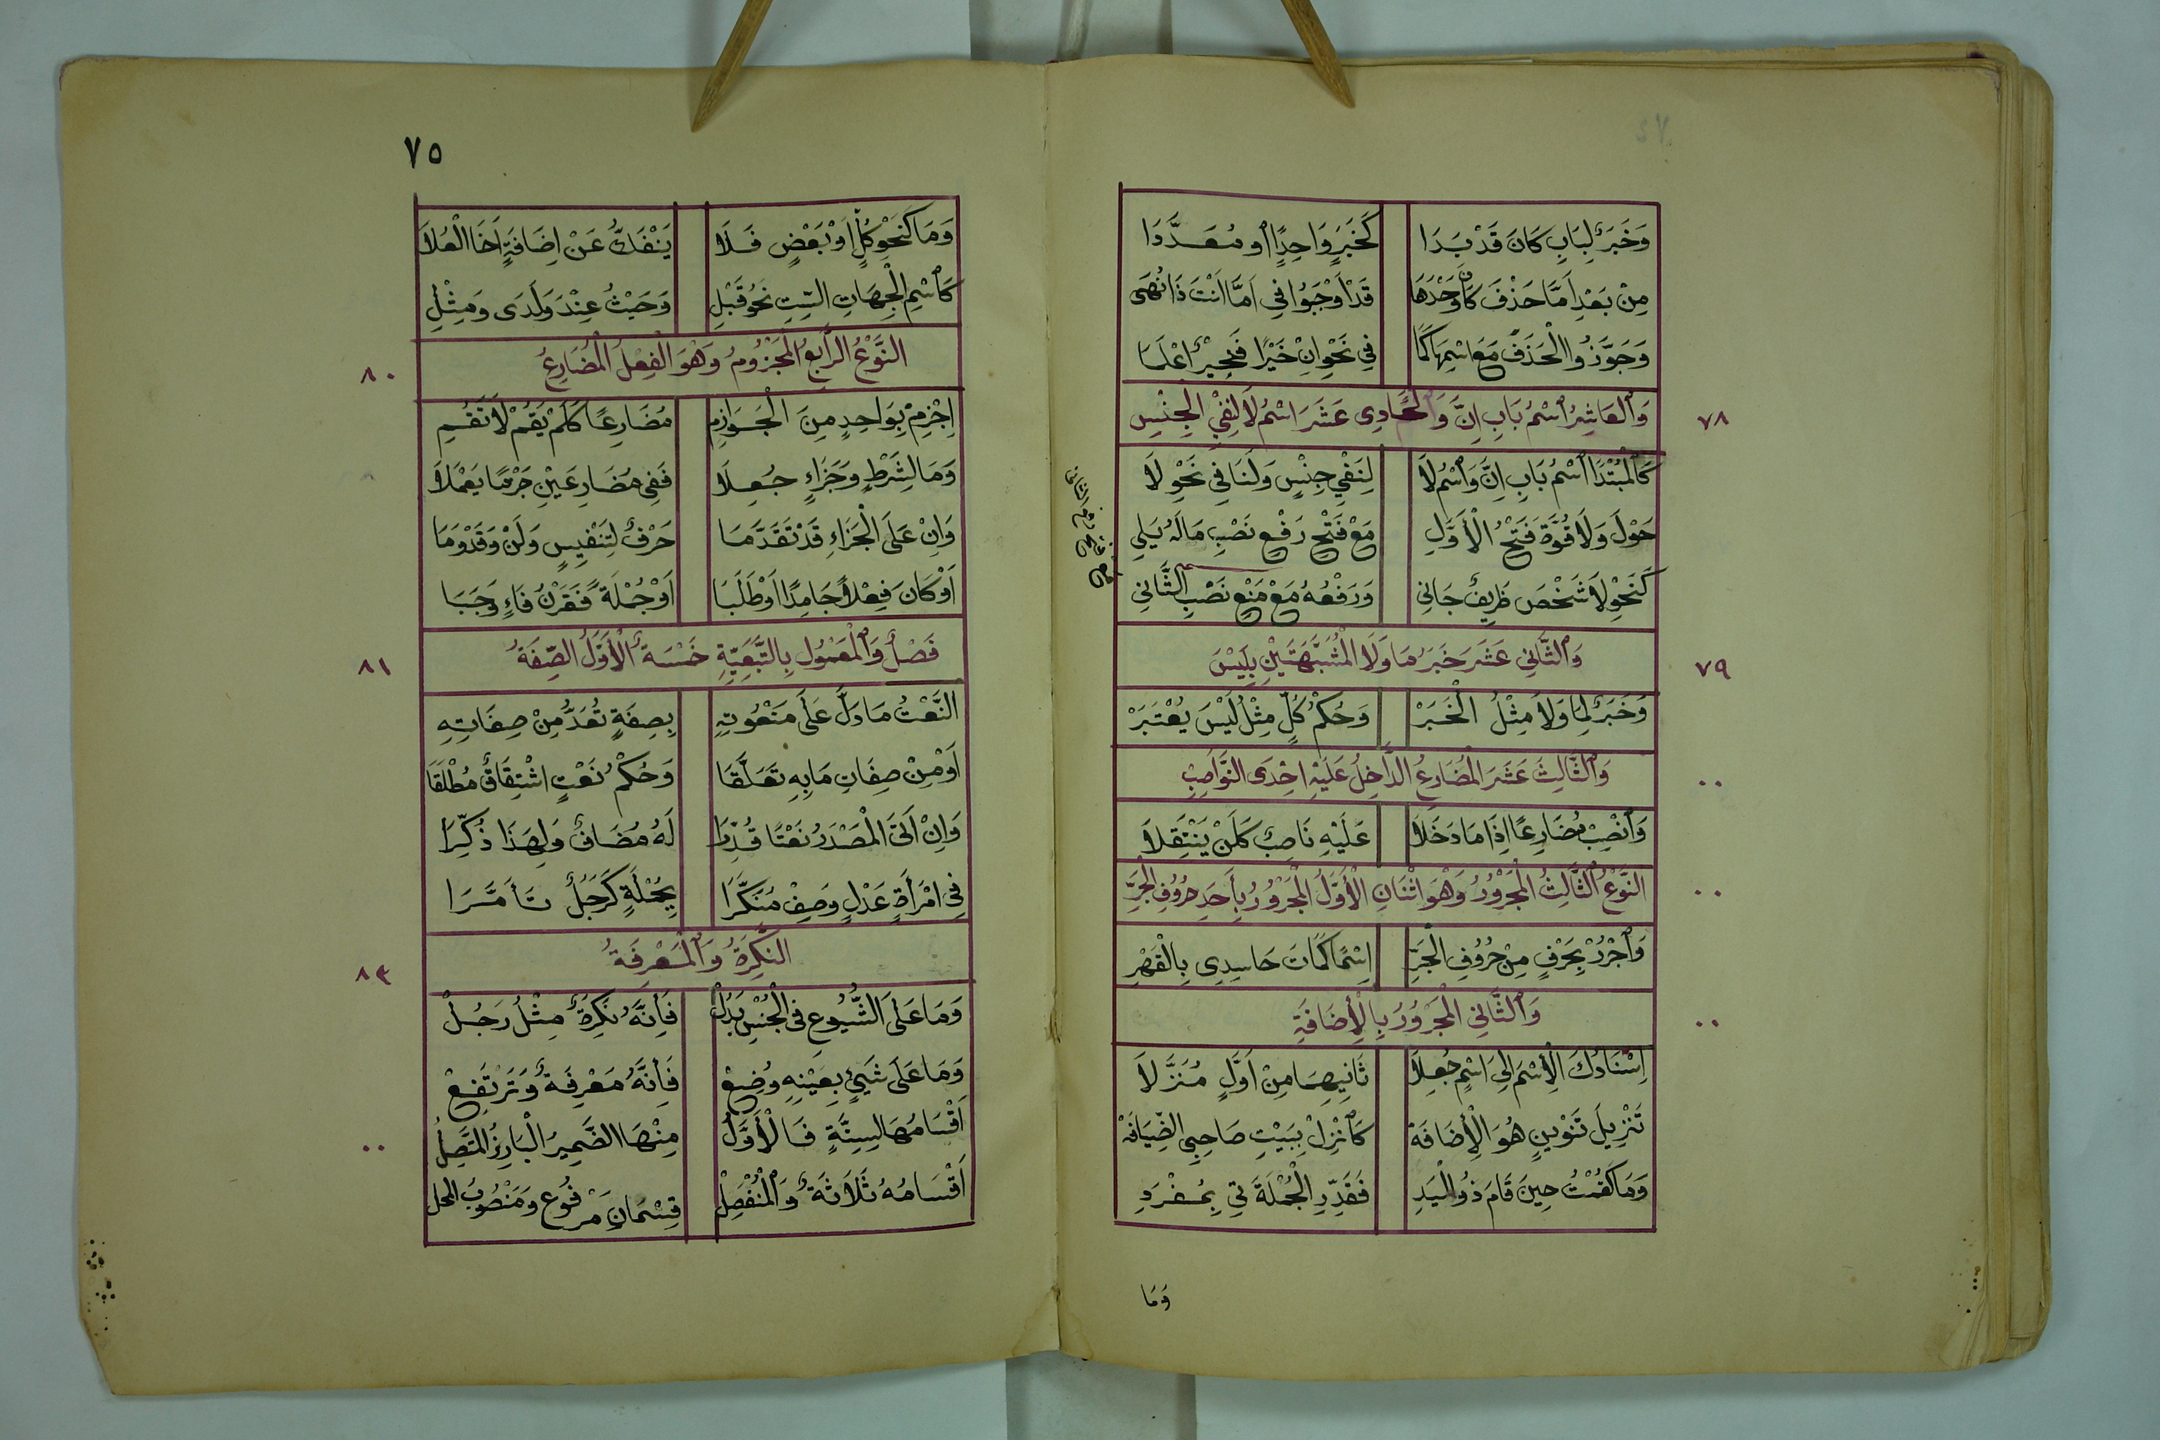 وَخَبَرٌ لِبَابِ كَانَ قَدْ بَدَا كَخَبَرٍ وَاحِدًا أو مُعَدَّدَا
مِنْ بَعْدِ اَمَّا حَذْفَ كَانَ وَحْدَهَا قَدْ اَوْجَبُوا فِي اَمَّا اَنْتَ ذَا نُهَى
وَجَوَّزُوا الْحَذْفَ مَعَ اسْمِهَا كَمَا فِي نَحْوِ اِنْ خَيْرًا فَخَيْرٌ اعْلَمَا
٧٨
وَالعَاشِرُ اسْمُ بَابِ اِنَّ وَالحَادِى عَشَرَ اسْمُ لَا لِنَفْيِ الجِنْسِ
كَالْمُبْتَدَا اسْمُ بَابِ اِنَّ وَاسْمُ لَا لِنَفْيِ جِنْسٍ وَلَنَا فِي نَحْوِ لَا
حَوْلَ وَلَا قُوَّةَ فَتْحُ الْأَوَّلِ مَعْ فَتْحِ رَفْعِ نَصْبِ مَا لَهُ يَلِي
كَنَحْوِ لَا شَخْصَ ظَرِيفٌ جَانِي وَرَفْعُهُ مَعْ مَنْعِ نَصْبِ الثَّانِي
٧٩
وَالثَّانِي عَشَرَ خَبَرُ مَا وَلَا الْمُشَبَّهَتَيْنِ بِلَيْسَ
وَخَبَرٌ لِمَا وَلَا مِثْلُ الْخَبَرْ وَحُكْمُ كُلٍّ مِثْلُ لَيْسَ يُعْتَبَرْ
وَالثَّالِثَ عَشَرَ الْمُضَارِعُ الدَّاخِلُ عَلَيْهِ اِحْدَى النَّوَاصِبِ
وَانْصِبْ مُضَارِعًا اِذَا مَا دَخَلَا عَلَيْهِ نَاصِبٌ كَلَنْ يَنْتَقِلَا
النَّوْعُ الثَّالِثُ الْمَجْرُورُ وَهْوَ اثْنَانِ الْأَوَّلُ الْمَجْرُورُ بِأَحَدِ حُرُوفِ الْجَرِّ
وَاجْرُرْ بِحَرْفٍ مِنْ حُرُوفِ الْجَرِّ اِسْمًا كَمَاتَ حَاسِدِي بِالْقَهْرِ
وَالثَّانِي الْمَجْرُورُ بِالْأِضَافَةِ
اِسْنَادُكَ الْأِسْمَ اِلَى اسْمٍ جُعِلَا ثَانِيهِمَا مِنْ اَوَّلٍ مُنَزَّلَا
تَنْزِيلَ تَنْوِينٍ هُوَ الْأِضَافَةْ كَانْزِلْ بِبَيْتِ صَاحِبِي الضِّيَافَةْ
وَمَا كَقُمْتُ حِينَ قَامَ ذُو الْيَدِ فَقَدِّرِ الْجُمْلَةَ تِي بِمُفْرَدِ
وَمَا
٧٥
وَمَا كَنَحْوِ كُلٍّ اَوْ بَعْضٍ فَلَا يَنْفَكُّ عَنْ اِضَافَةٍ اَخَا الْعُلَا
كَاسْمِ الْجِهَاتِ السِّتِّ نَحْوُ قَبْلِ وَحَيْثُ عِنْدَ وَلَدَى وَمِثْلِ
٨٠
النَّوْعُ الرَّابِعُ الْمَجْزُومُ وَهْوَ الْفِعْلُ الْمُضَارِعُ
اِجْزِمْ بِوَاحِدٍ مِنَ الْجَوَازِمِ مُضَارِعًا كَلَمْ يَقُمْ لَا تَقُمِ
وَمَا لِشَرْطٍ وَجَزَاءٍ جُعِلَا فَفِي مُضَارِعَيْنِ جَزْمًا يَعْمَلَا
وَاِنْ عَلَى الْجَزَاءِ قَدْ تَقَدَّمَا حَرْفٌ لِتَنْفِيسٍ وَلَنْ وَقَدْ وَمَا
اَوْ كَانَ فِعْلًا جَامِدًا اَوْ طَلَبَا اَوْ جُمْلَةً فَقَرْنُ فَاءٍ وَجَبَا
٨١
فَصْلٌ وَالْمَعْمُولُ بِالتَّبَعِيَّةِ خَمْسَةٌ الْأَوَّلُ الصِّفَةُ
النَّعْتُ مَا دَلَّ عَلَى مَنْعُوتِهِ بِصِفَةٍ تُعَدُّ مِنْ صِفَاتِهِ
اَوْ مِنْ صِفَاتِ مَا بِهِ تَعَلَّقَا وَحُكْمُ نَعْتٍ اشْتِقَاقٌ مُطْلَقَا
وَاِنْ اَتَى الْمَصْدَرُ نَعْتًا قُدِّرَا لَهُ مُضَافٌ وَلِهَذَا ذُكِّرَا
فِي امْرَأَةٍ عَدْلٍ وَصِفْ مُنَكَّرَا بِجُمْلَةٍ كَرَجُلٌ تَأَمَّرَا
٨٣
النَّكِرَةُ وَالْمَعْرِفَةُ
وَمَا عَلَى الشُّيُوعِ فِي الْجِنْسِ يَدُلْ فَاِنَّهُ نَكِرَةٌ مِثْلُ رَجُلْ
وَمَا عَلَى شَيْءٍ بِعَيْنِهِ وُضِعْ فَاِنَّهُ مَعْرِفَةٌ وَتَرْتَفِعْ
اَقْسَامُهَا لِسِتَّةٍ فَالْأَوَّلُ مِنْهَا الضَّمِيرُ الْبَارِزُ الْمُتَّصِلُ
اَقْسَامُهُ ثَلَاثَةٌ وَالْمُنْفَصِلْ قِسْمَانِ مَرْفُوعٌ وَمَنْصُوبُ المحل